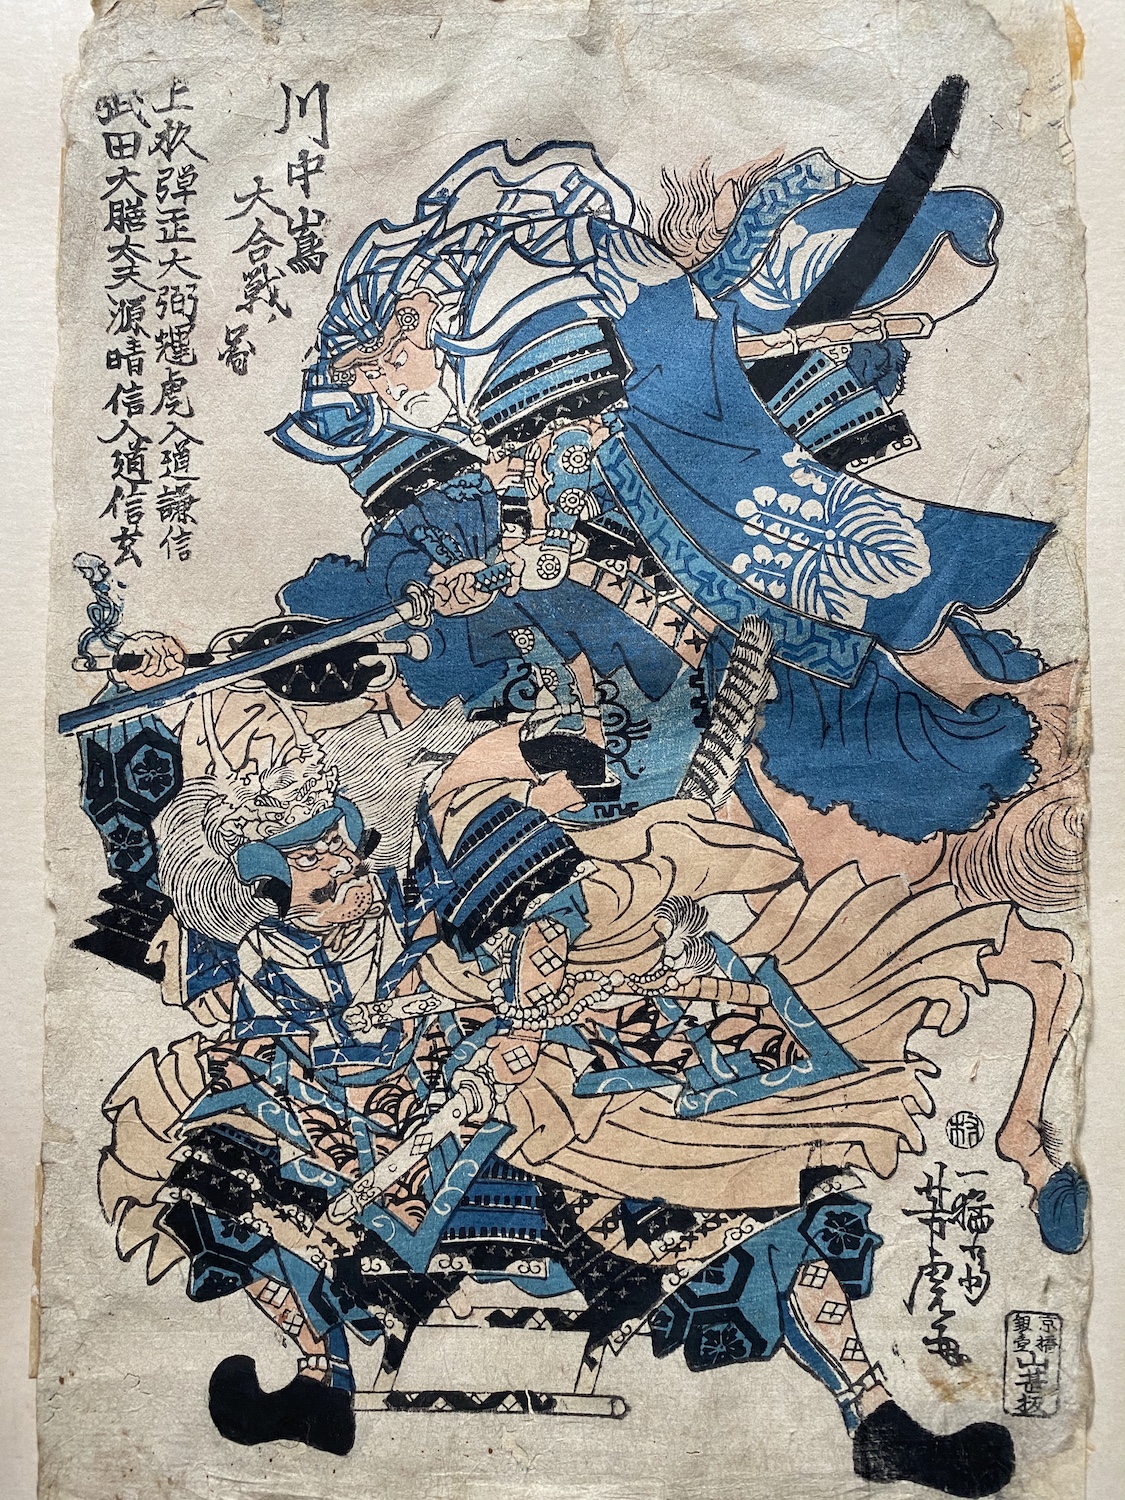 川中嶌
大合戦
圖
上杦弾正大弼輝虎入道謙信
武田大膳太夫源晴信入道信玄
一猛斎
芳虎画
京橋
銀壹
山甚板